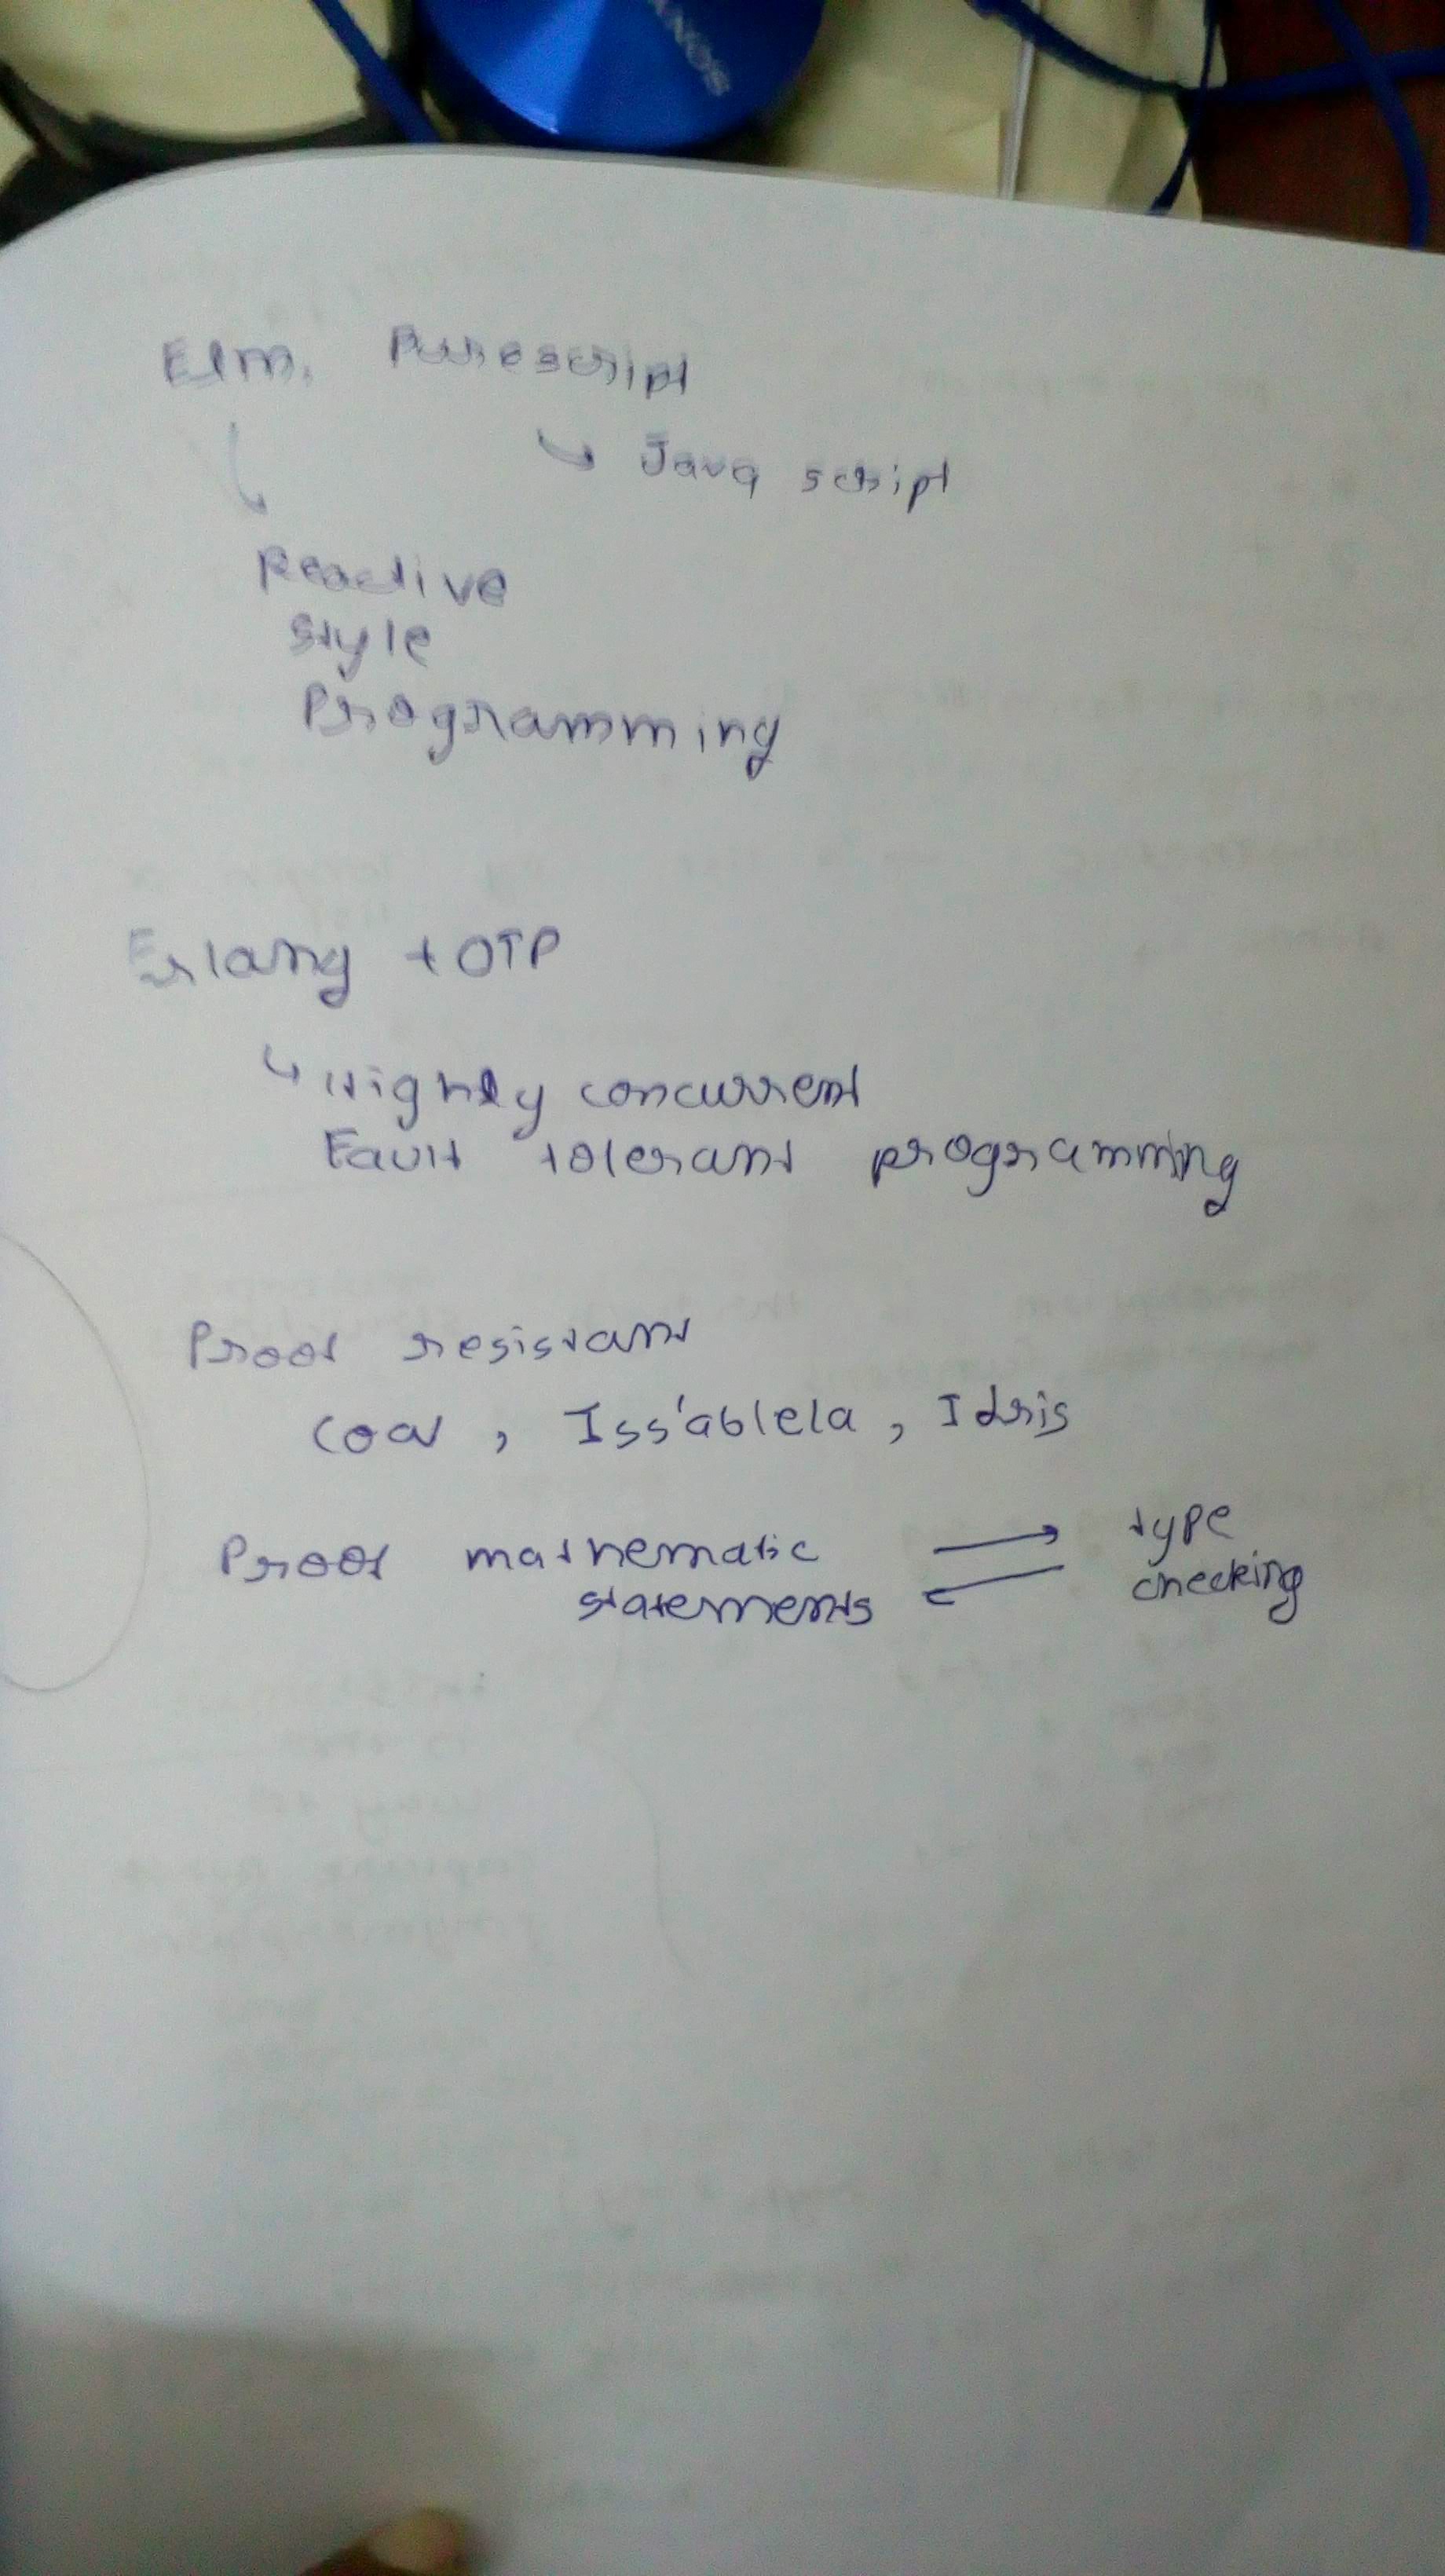 SONY
Elm, Purescript
↳ Java script
Reactive
style
Programming
Erlang + OTP
↳ Highly concurrent
Fault tolerant programming
Proof resistant
Coq, Iss'ablela, Idris
Proof mathematic type
statements checking